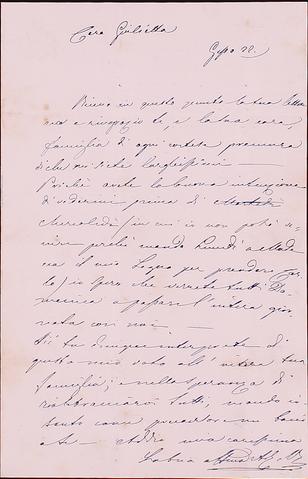 Cara Giulietta
Ricevo in questo punto la tua lette
ra e ringrazio te, e la tua cara
famiglia di ogni cortese premura
di che mi siete larghissimi —
Poichè avete la buona intenzione
di vedermi prima di
Mercoledì (in cui io non potrò
perchè mando Lunedì a
il mio legno per prendere
io spero che verrete tutti Do
menica a passare l'intera gior
nata con noi —
Sii tu dunque interprete di
questo mio voto all' intera tua
famiglia; nella speranza di
riabbracciarvi tutti, mando in
tanto come un bacio
a te — Addio mia carissima
La tua